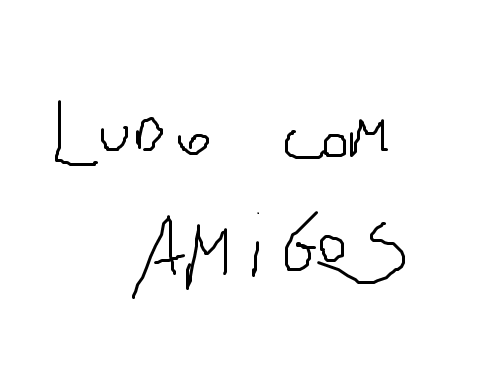 LUDo com
AMiGOS